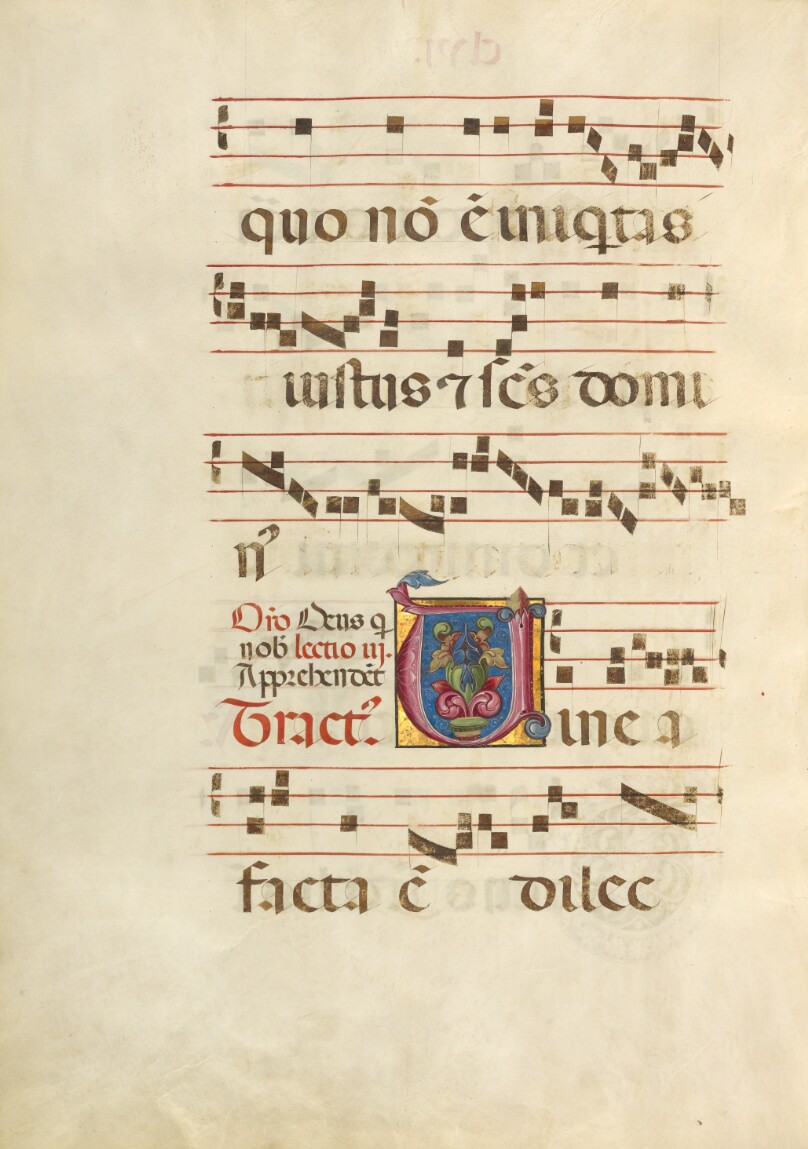 quo nō ē iniqtas
iustus ⁊ scs domi
nꝰ
Oro Deus q
nob lectio iij.
Apprehendēt
Tractꝰ. Uinea
facta ē dilec